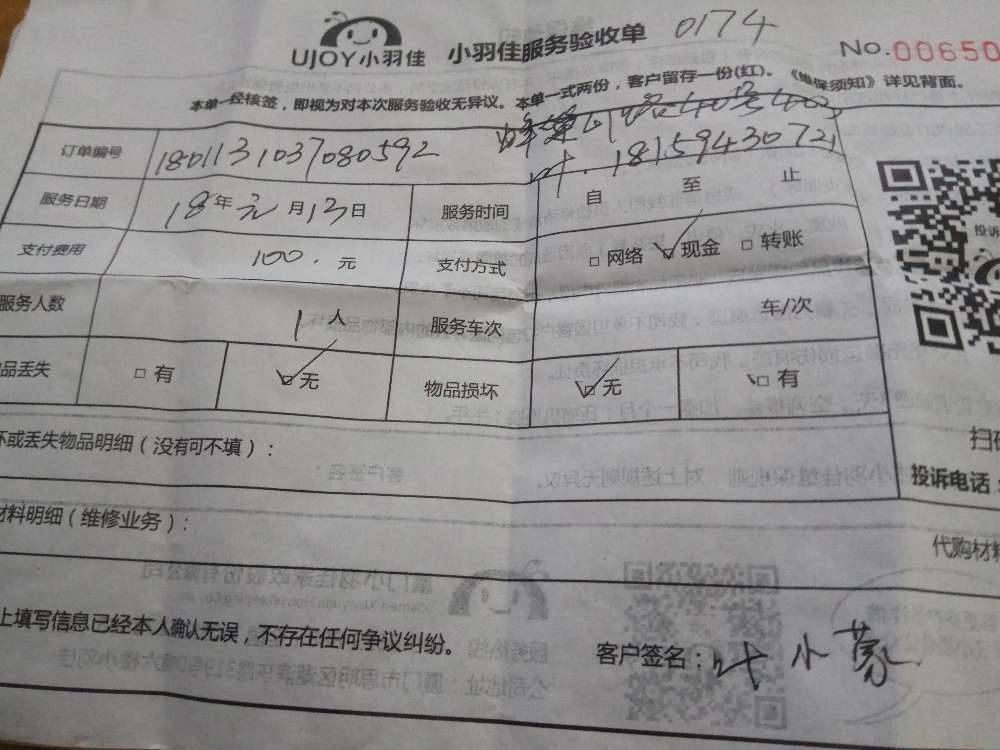 UJOY小羽佳 小羽佳服务验收单 0174 No.00650
本单一经核签，即视为对本次服务验收无异议。本单一式两份，客户留存一份(红)。《维保须知》详见背面。
订单编号 1801131037080592 叶.18159430721
服务日期 18年元月13日 服务时间 自 至 止
支付费用 100.元 支付方式 □网络 ☑现金 □转账
服务人数 1人 服务车次 车/次
品丢失 □有 ☑无 物品损坏 ☑无 □有
坏或丢失物品明细（没有可不填）：
扫码
投诉
投诉电话：
材料明细（维修业务）：
代购材料
上填写信息已经本人确认无误，不存在任何争议纠纷。
客户签名：叶小蒙